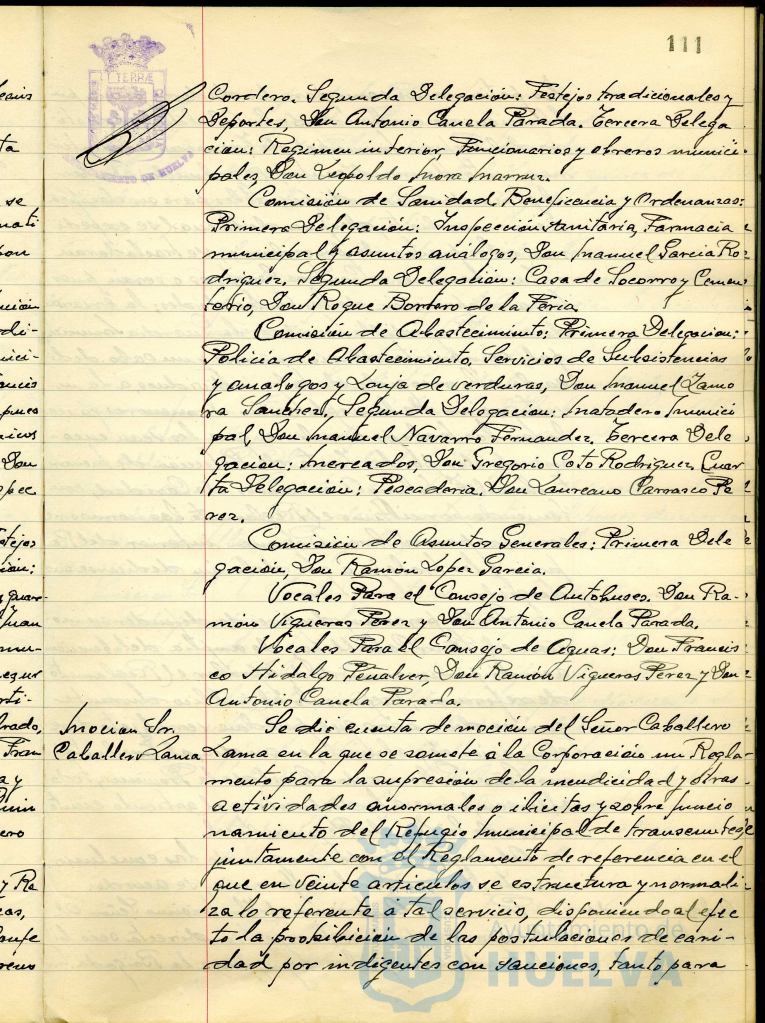 111
Cordero. Segunda Delegación: Festejos tradicionales y
Deportes, Don Antonio Canela Parada. Tercera Delega
ción: Regimen interior, Funcionarios y obreros munici-
pales, Don Leopoldo Mora
Comisión de Sanidad, Beneficencia y Ordenanzas:
Primera Delegación: Inspección sanitaria, Farmacia
municipal y asuntos análogos, Don Manuel Garcia Ro-
driguez. Segunda Delegación: Casa de Socorro y Cemen-
terio, Don Roque Borrero de la Feria
Comisión de Abastecimiento: Primera Delegacion:
Policia de Abastecimiento, Servicios de Subsistencias
y analogos y Lonja de verduras, Don Manuel Zamo
ra Sanchez. Segunda Delegacion: Matadero Munici
pal, Don Manuel Navarro Fernandez. Tercera Dele
gacion: Mercados, Don Gregorio Coto Rodriguez. Cuar
ta Delegación: Pescaderia. Don Laureano Carrasco Pe
rez.
Comisión de Asuntos Generales: Primera Dele
gación, Don Ramón Lopez Garcia.
Vocales Para el Consejo de Autobuses. Don Ra-
món Vigueras Perez y Don Antonio Canela Parada.
Vocales Para el Consejo de Aguas: Don Francis
co Hidalgo Peñalver, Don Ramón Vigueras Perez y Don
Antonio Canela Parada.
Mocion Sr.
Caballero Lama
Se dio cuenta de moción del Señor Caballero
Lama en la que se somete á la Corporación un Regla-
mento para la supresión de la mendicidad y otras
actividades anormales o ilicitas y sobre funcio
namiento del Refugio Municipal de transeuntes,
juntamente con el Reglamento de referencia en el
que en veinte articulos se estructura y normali
za lo referente á tal servicio, disponiendo al efec
to la prohibición de las postulaciones de cari-
dad por indigentes con sanciones, tanto para
Ayuntamiento de
HUELVA